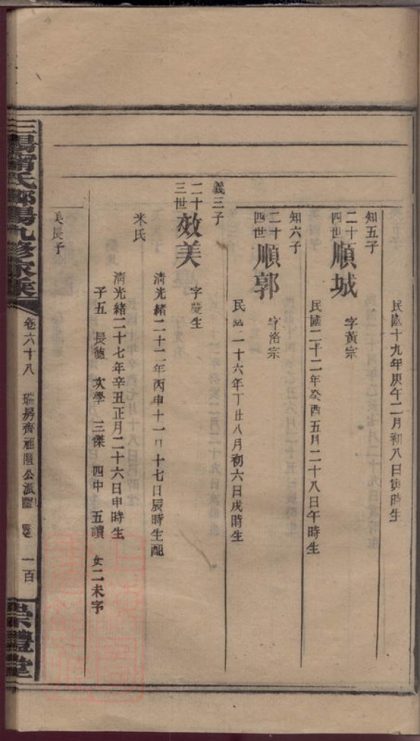 民國十九年庚午二月初八日辰時生
知五子
二十四世 順城 字黃宗
民國二十二年癸酉五月二十八日午時生
知六子
二十四世 順郭 字洛宗
民國十六年丁卯八月初六日戌時生
義三子
二十三世 效美 字慶生
清光緒二十二年丙申十一月十七日辰時生配
米氏
清光緒二十七年辛丑正月二十六日申時生
子五 長德 次學 三傑 四中 五讀 女二未字
美長子
三陽甯氏邵陽九修家譜
卷六十八
一百
崇禮堂